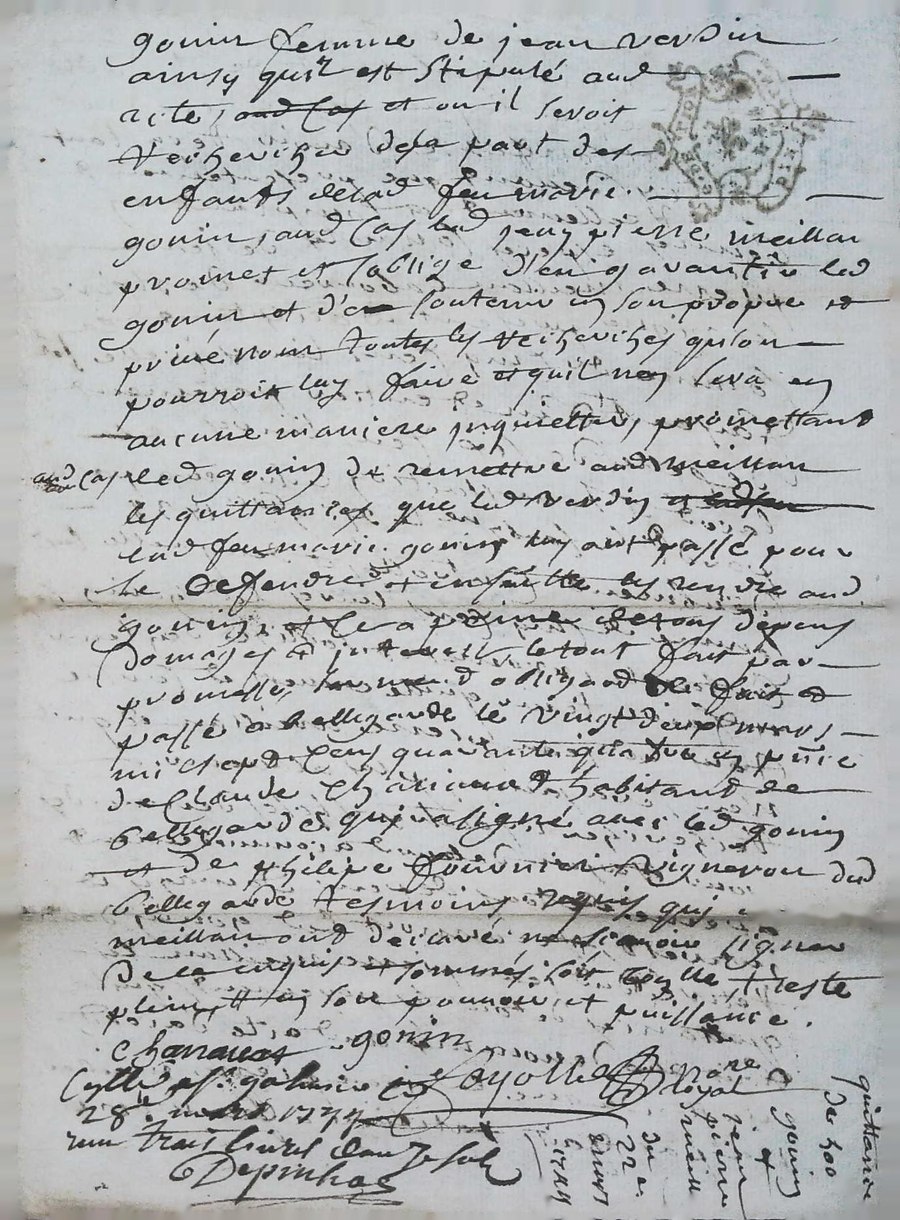 gonin femme de jean verdin
ainsy quil est stipulé aud
acte, et ou il seroit
recherché dela part des
enfants delad feu marie
gonin, aud cas led jean pierre meillan
promet et soblige d'en garantir led
gonin et d'en soutenir en son propre et
privé nom toutes les recherches qu'on
pourroit luy faire et quil nen sera en
aucune maniere inquietter, promettant
aud cas led gonin de remettre aud meillan
les quittances que led verdin
lad feu marie gonin luy ont passé pour
se deffendre et en suitte les rendre aud
gonin, et ce a peine de tous depens
domages et interest, le tout fait par
promesse, obligaon fait et
passé a bellegarde le vingt deux mars
mil sept cens quarante quatre en pnce
de Claude habitant de
bellegarde qui a signé avec led gonin
et de philipe fournier vigneron dud
bellegarde tesmoins requis qui
meillan ont declaré ne scavoir signer
de ce enquis et sommés soit teste
plein et en son pouvoir et puissance.
gonin
nore Royal
28e mars 1744
reçu trois livres
quittance
de 300
gonin
et
jean
pierre
meill
du
22
mars
1744